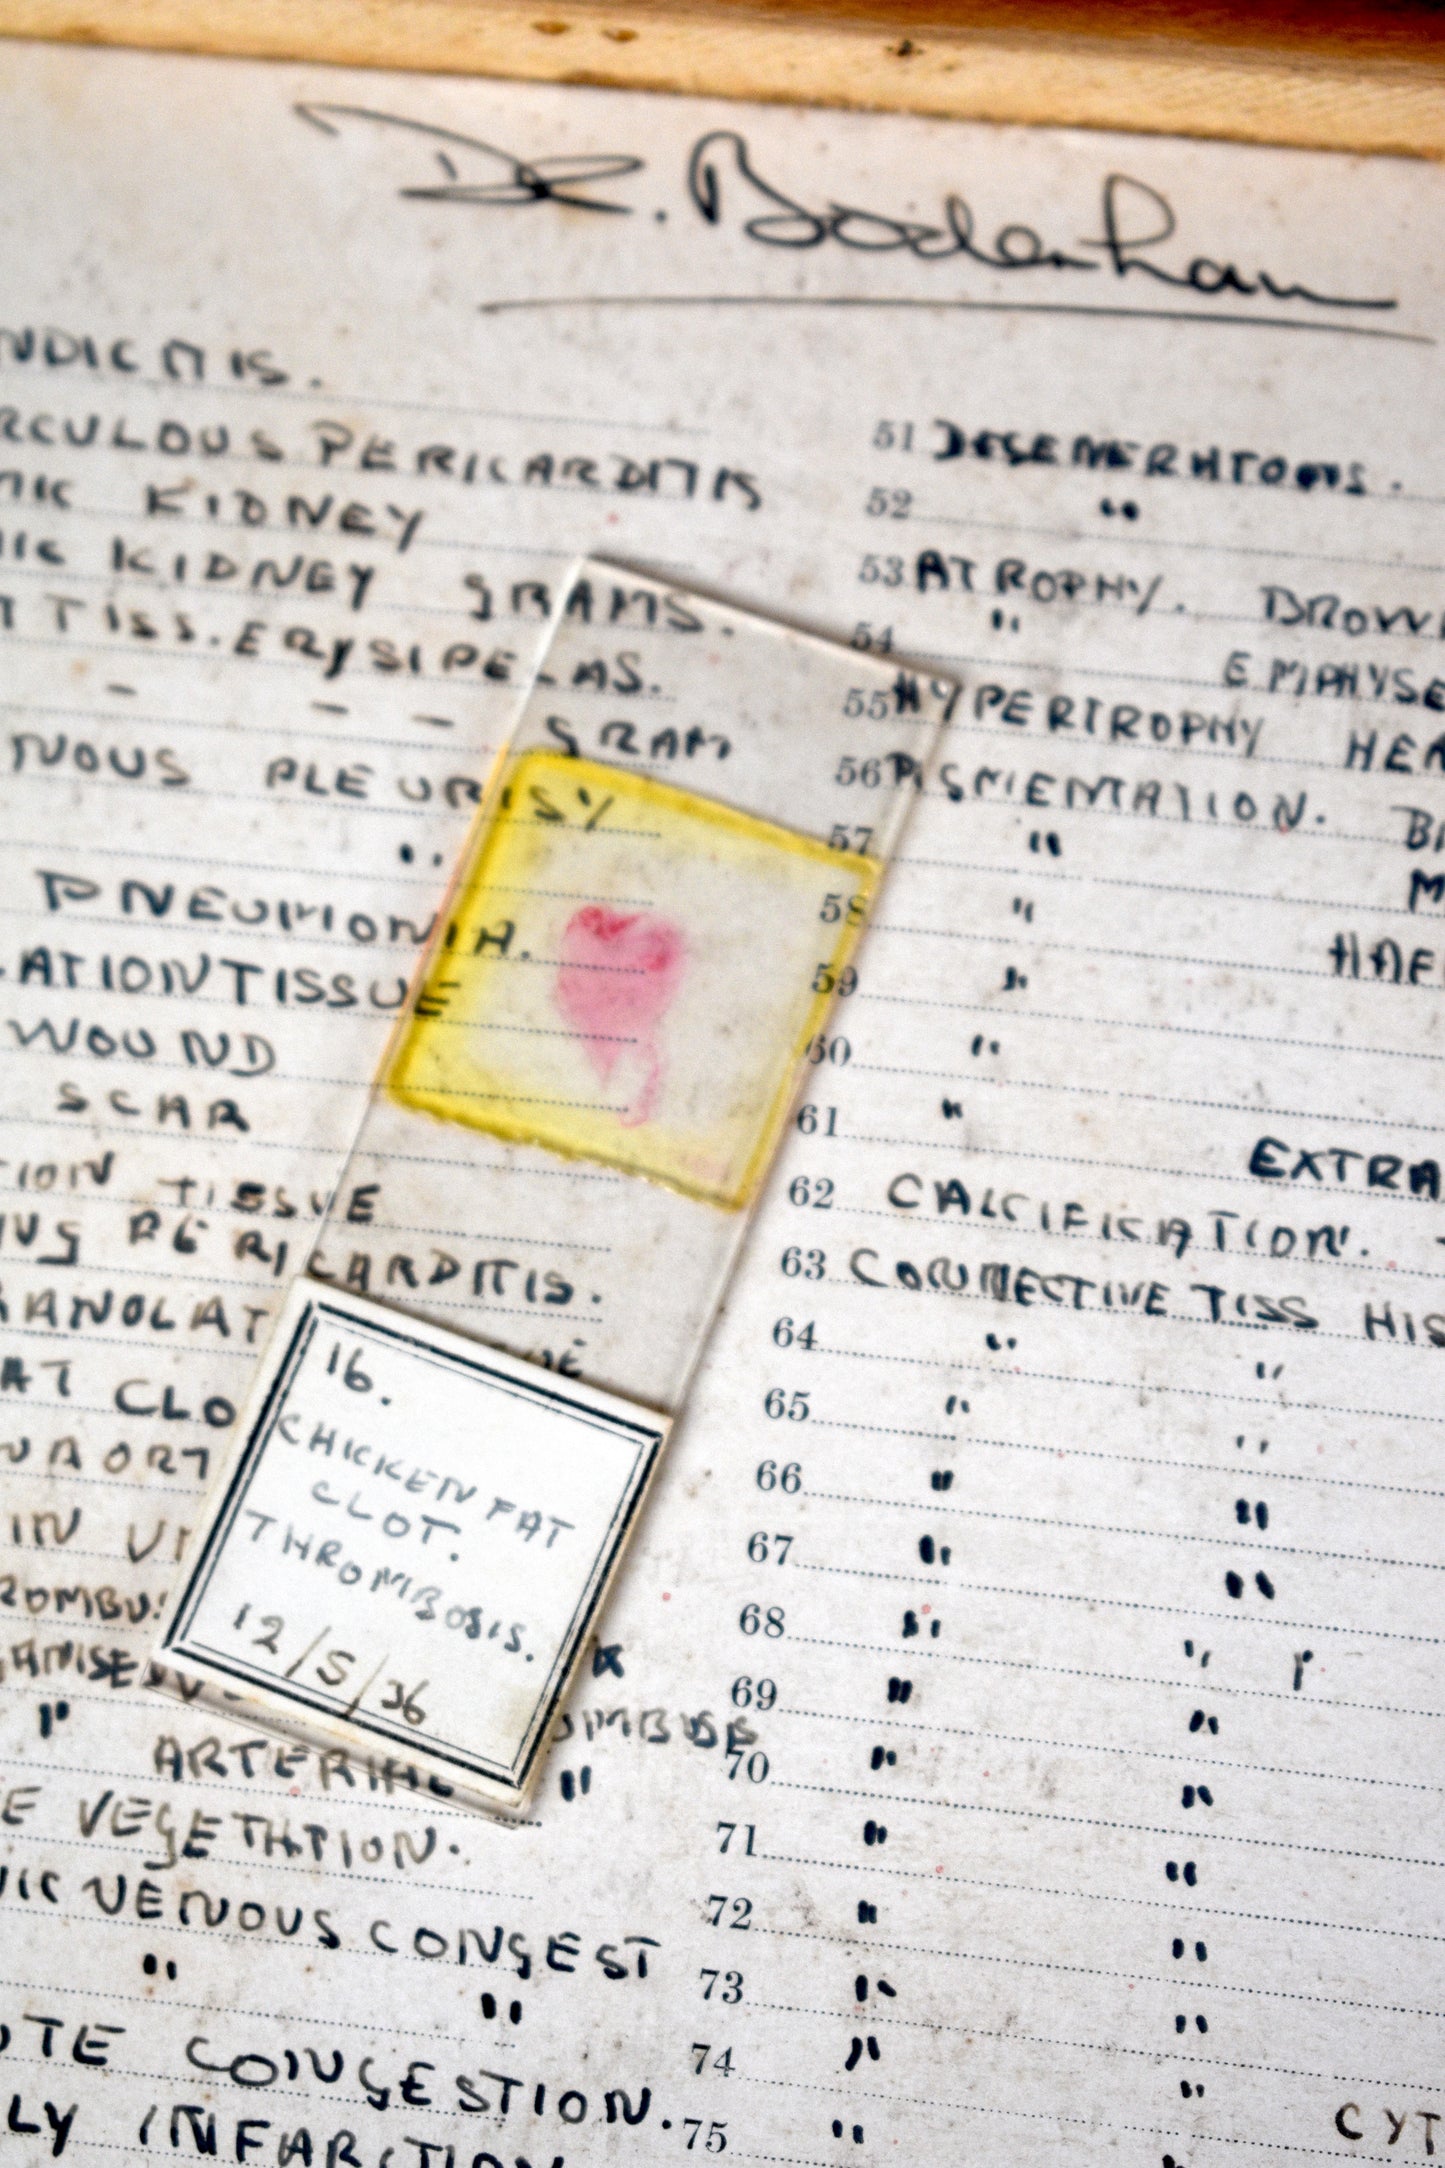 Dr. Bodenham
NDICITIS.
RCULOUS PERICARDITIS
KIDNEY
KIDNEY GRAMS.
TISS. ERYSIPELAS.
- - - GRAM
NOUS PLEURISY
"
PNEUMONIA.
ATION TISSUE
WOUND
SCAR
TION TISSUE
PERICARDITIS.
RANULAT
AT CLO
AORT
IN
ROMBUS
GANISED
" OMBUS
ARTERIAL "
E VEGETATION.
VENOUS CONGEST
" "
CONGESTION.
LY INFARCTION
16.
CHICKEN FAT
CLOT.
THROMBOSIS.
12/5/36
51 DEGENERATIONS.
52 "
53 ATROPHY. BROWN
54 " EMPHYSE
55 HYPERTROPHY HEA
56 PIGMENTATION. B
57 " M
58 "
59 " HAE
60 "
61 " EXTRA
62 CALCIFICATION.
63 CONNECTIVE TISS HIS
64 " "
65 " "
66 " "
67 " "
68 " "
69 " "
70 " "
71 " "
72 " "
73 " "
74 " "
75 " CYT